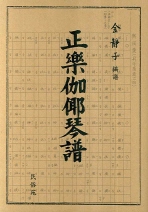 金靜子
正樂伽倻琴譜
民俗苑